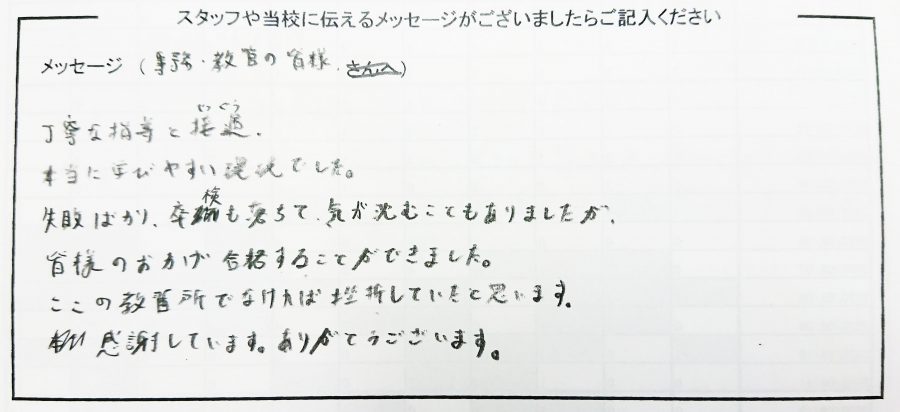 スタッフや当校に伝えるメッセージがございましたらご記入ください
メッセージ (事務・教官の皆様 さんへ)
丁寧な指導と接遇、
本当に学びやすい環境でした。
失敗ばかり、卒検も落ちて、気が沈むこともありましたが、
皆様のおかげ合格することができました。
ここの教習所でなければ挫折していたと思います。
感謝しています。ありがとうございます。